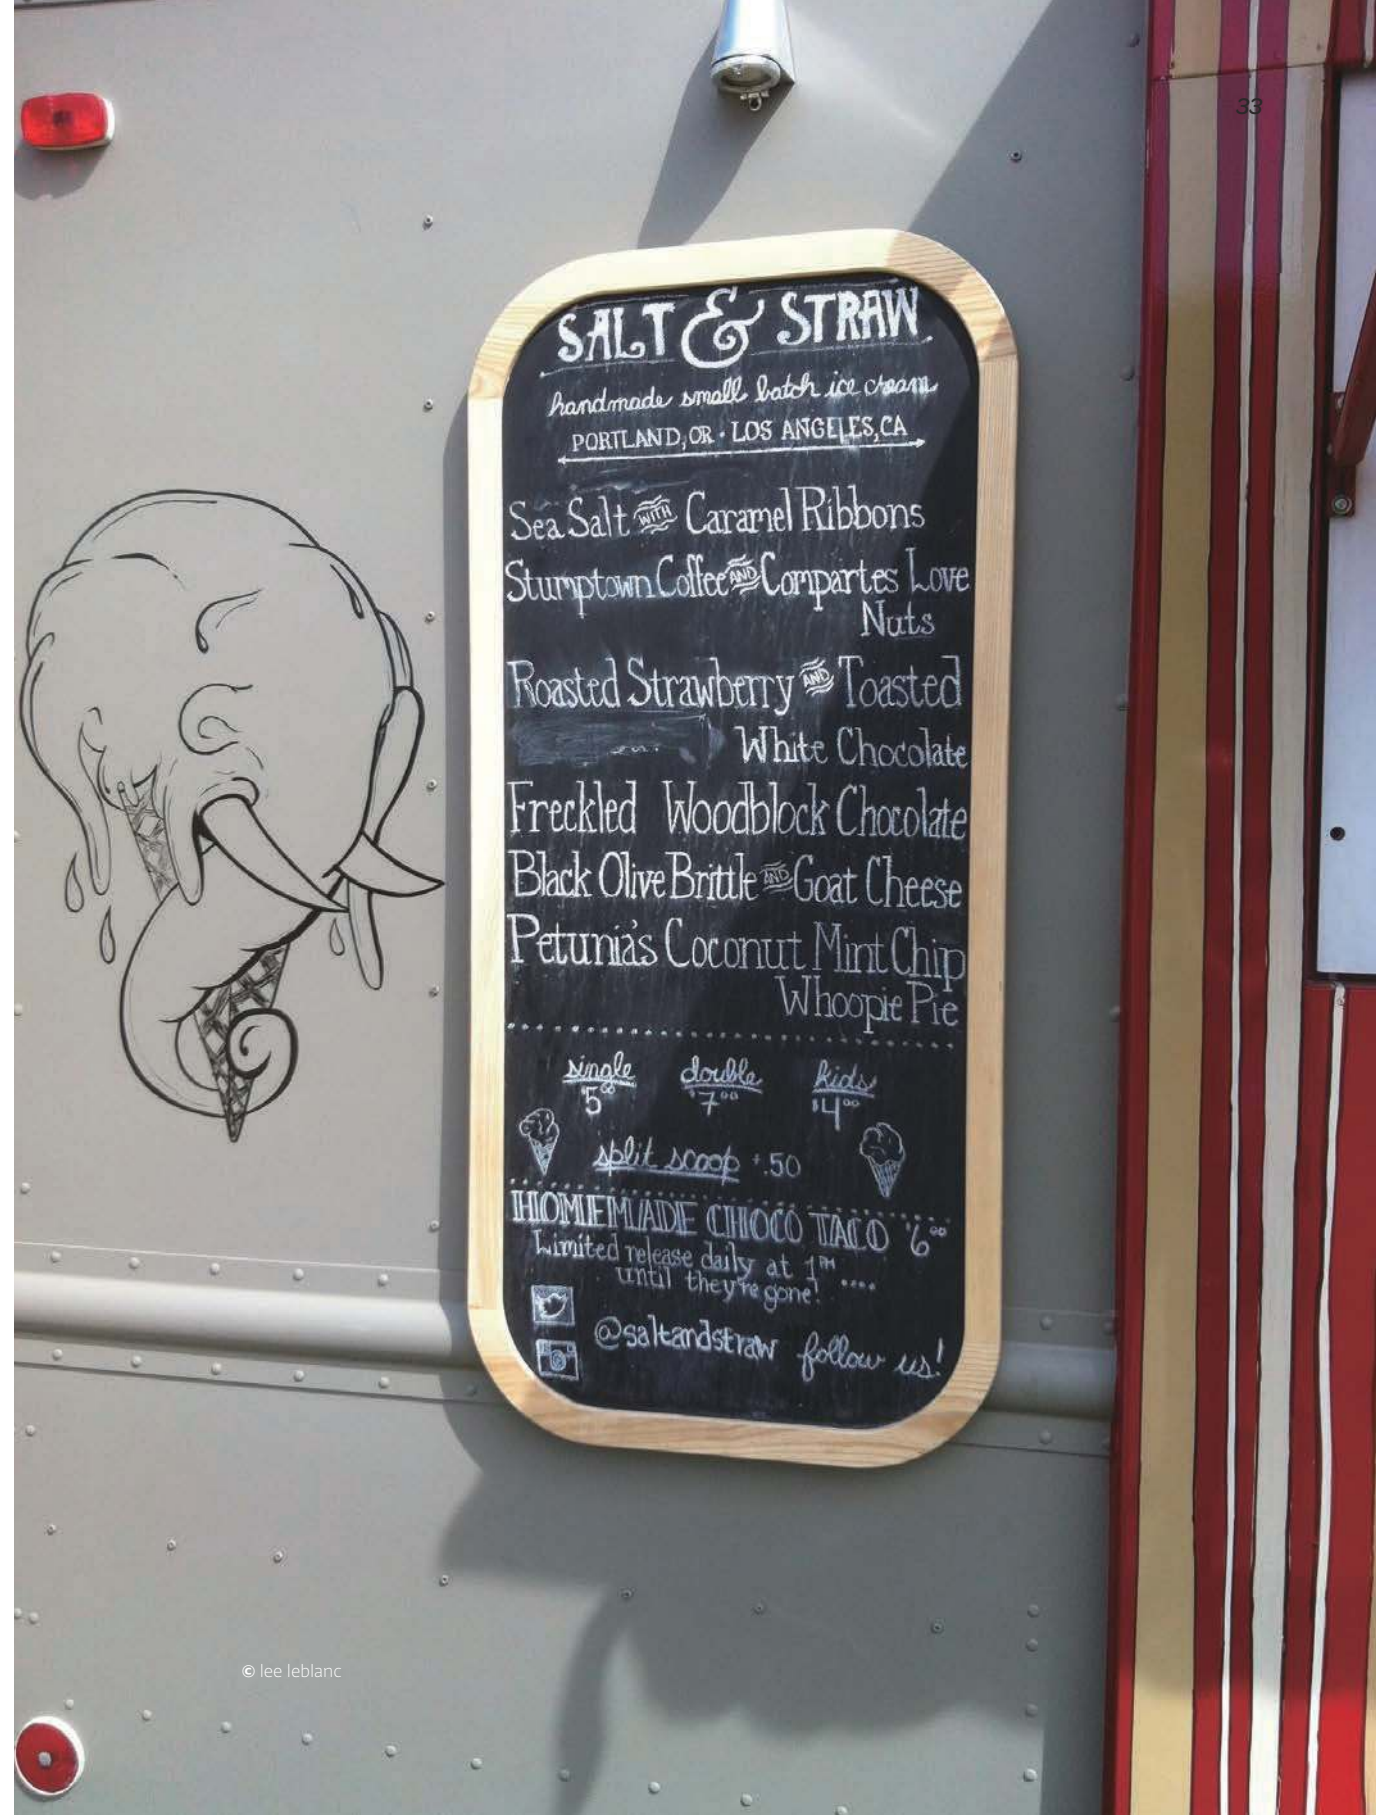 33
SALT & STRAW
handmade small batch ice cream
PORTLAND, OR · LOS ANGELES, CA
Sea Salt WITH Caramel Ribbons
Stumptown Coffee AND Compartes Love
Nuts
Roasted Strawberry AND Toasted
White Chocolate
Freckled Woodblock Chocolate
Black Olive Brittle AND Goat Cheese
Petunia's Coconut Mint Chip
Whoopie Pie
single double kids
$5.00 $7.00 $4.00
split scoop +.50
HOMEMADE CHOCO TACO $6.00
Limited release daily at 1PM
until they're gone! ....
@saltandstraw follow us!
© lee leblanc